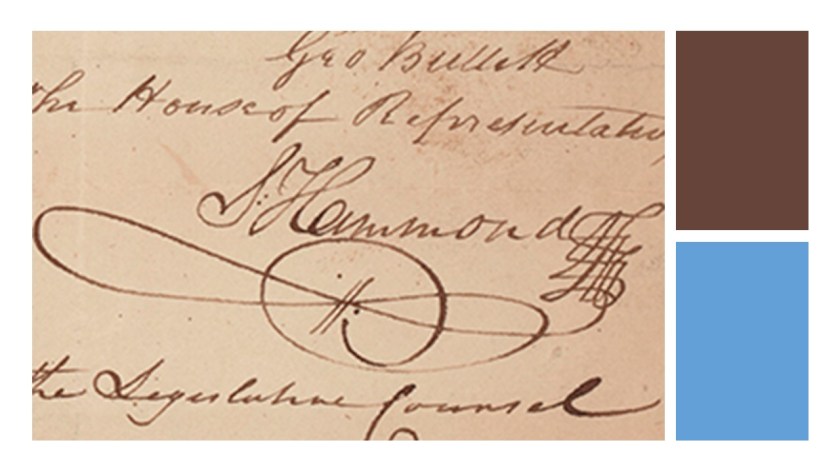 Geo Bullett
the House of Representativ
S. Hammond
the Legislative Counsel